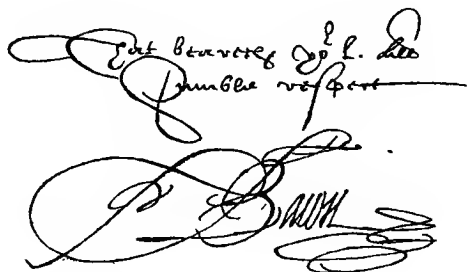 that beareth yoʳ L. all
humble respect
Fr Bacon